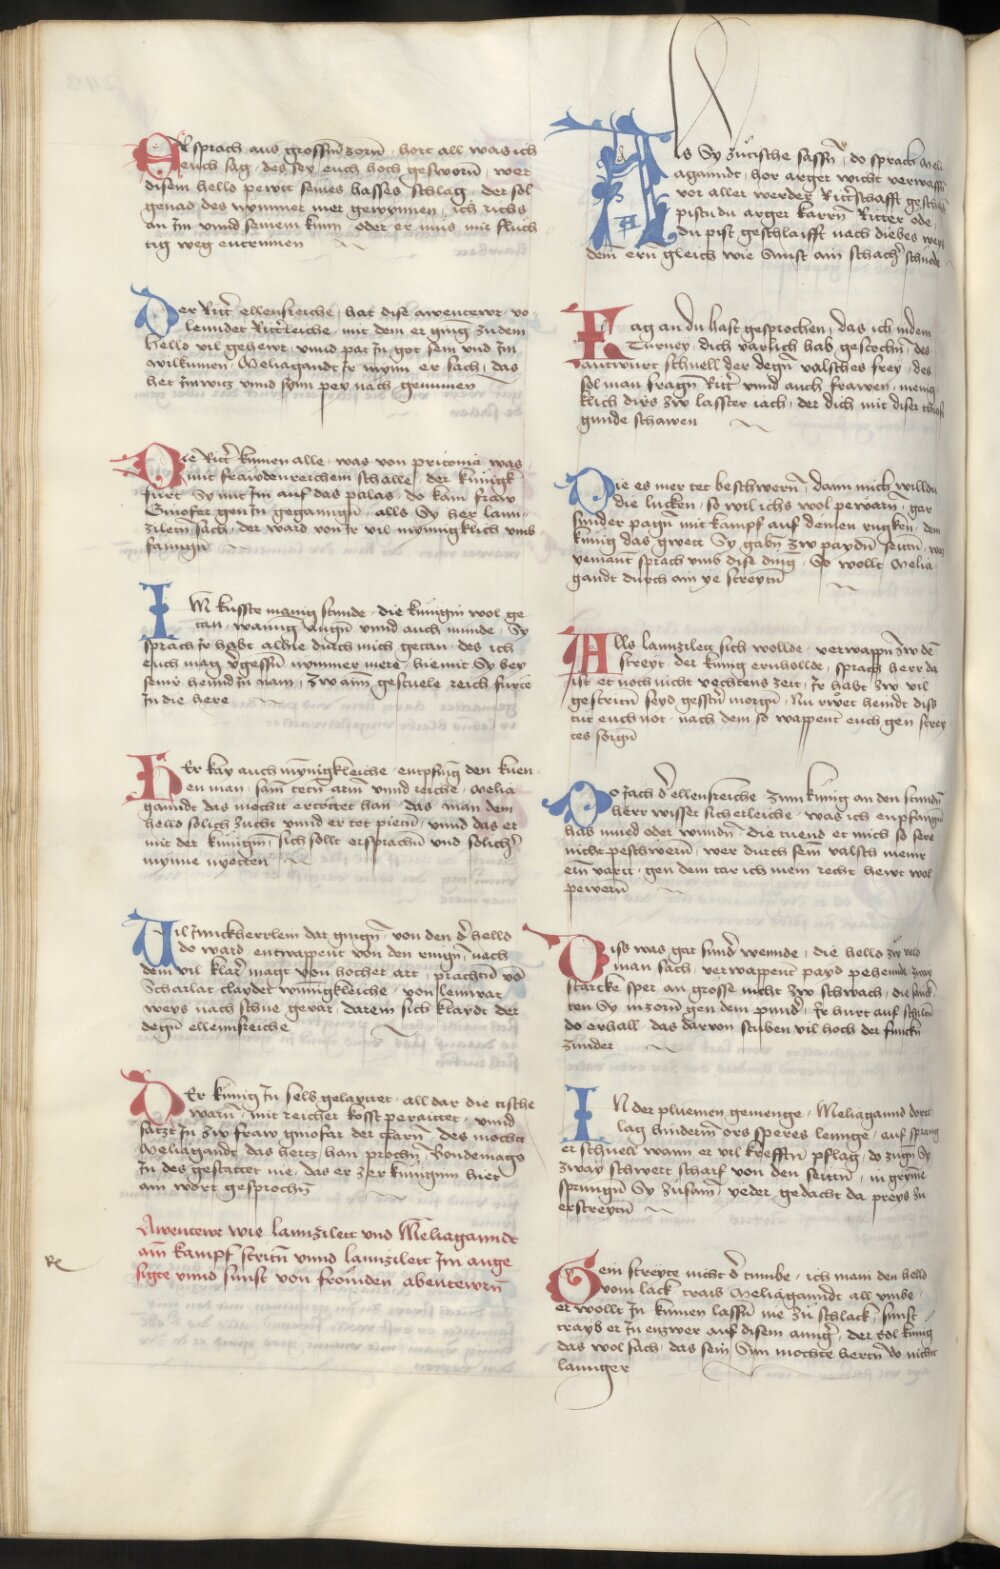 Er sprach aus grossem zorn · hort all was ich
euch sag · des sey euch hoch gesworn · wer
disem hello pewt seines hasses schlag · der sol
genad des nymmer mer gewynnen · ich richs
an Im vnnd seinem kunn · oder er mus mit fluch
tig weg entrinnen
Der Ritter ellensreiche · hat dise awentewr vo-
lenndet Ritterleiche · mit dem er ging zu dem
hello vil gehewr · vnnd pat In got sein vnd Im
wilkumen · Meliagandt Ir mynn er sach · das
het Im witz vnnd synn pey nach genummen
Die Ritter kumen alle · was von pritonia was
mit frawdenreichem schalle · der kunigk
furt Sy mit Im auf das palas · do kam fraw
Ginofer gen In gegangen · alls Sy her lann-
zileten sach · der ward von Ir vil mynnigklich vmb
fanngen
IM kusste manig stunde · die kunigin wol ge
tan · wanng augen vnnd auch munde · Sy
sprach Ir habt allne durch mich getan · des ich
euch mag vergessen nymmer mere · hiemit Sy sey
seine hennd In nam · zw aim gestuele reich furte
In die here
HEr kay auch mynigkleiche · entpfing den kuen
en man · sam tetn arm vnnd reiche · Melia
ganndt das mocht ertottet han · das man dem
hello solich zucht vnnd er tet pieten · vnnd das er
mit der kunigin · sich sollt ersprachen vnd solicher
mynne nyetten
Vil Junckherrlein dar gingen · von den der hello
do ward · entwappent von den ringen · nach
dem vil klarer magt von hocher art · prachten von
Scharlat claydet wunnigkleiche · von leinwat
weys nach schne gevar · darein sich klaydt der
degen ellennsreiche
DEr kunig In selb gelayttet · all dar die tische
warn · mit reicher kosst peraittet · vnnd
satzt In zw fraw ginofar der clarn · des mocht
Meliagandt das hertz han prochen · Bondemags
In des gestattet nie · das er zer kuniginn hiet
ain wort gesprochen
Awentewr wie lannzilett vnd Meliaganndt
ain kampf striten vnnd lannzilett Im ange
sigte vnnd sunst von frömden abentewrn
Als Sy zu tische sassen · do sprach Meli
aganndt · hor arger wicht verwassen
vor aller werder Ritterschafft geschant
pistu du arger karrn Ritter ode
du pist geschlaifft nach diebes weys
dem ern gleich wie sunst ain schacher schnode
Frag an du hast gesprochen · das ich in dem
Turney · dich varlich hab gestochen · des
antwurt schnell der degen valsches frey · des
sol man fragen Ritter vnnd auch frawen · menig
klich dirs zw lasster iach · der dich mit diser
gunde schawen
Die es mer tet beschwern · dann mich willen
die lucken · so wil ichs wol pewarn · gar
sunder pagen mit kampf auf deinen rugken · dem
kunig das gwett Sy gaben zw payden seiten · was
yemant sprach vmb dise ding · So wollt Melia-
gandt durch ain ye streyten
Alls lannzilett sich wollde · verwappen zw dem
streyt · der kunig ernhollde · sprach herr da
ist et noch nicht vechtens zeit · Ir habt zw vil
gestriten seyd gesster morgen · Nu rwet heindt diss
tut euch not · nach dem so wappent euch gen strey
tes sorgen
Do iach der ellensreiche zum kunig an den stunden
herr wisset sicherleiche · was ich enpfangen
hab mued oder wunden · die tuend et mich so sere
nicht peschwern · wer durch sein valsch meine
ern varit · gen dem tar ich mein recht hewt wol
pewern
Diss was gar sunder wennde · die hello zw velo
man sach · verwappent payd pehennde zway
starcke sper an grosse nicht zw schwach · die sanck
ten Sy in zorn gen dem pund · Ir hurt auf schilten
do erhall · das darvon stuben vil hoch der funcken
zunder
IN der pluemen gemenge · Meliagannd dort
lag hinderm ors speres lennge · auf sprang
er schnell wann er vil krefften pflag · do zugen Sy
zway schwert scharf von den seiten · in grymme
sprungen Sy zusam · yeder gedacht da preys zu
erstreyten
Sein streyte nicht der tumbe · ich main den hello
vom lack · traib Meliaganndt all vmbe ·
er wollt In kumen lassen nie zu schlack · sunst
trayb er In enzwer auf disem annger · der edl kunig
das wol sach · das sein Sun mochte herten do nicht
lannger